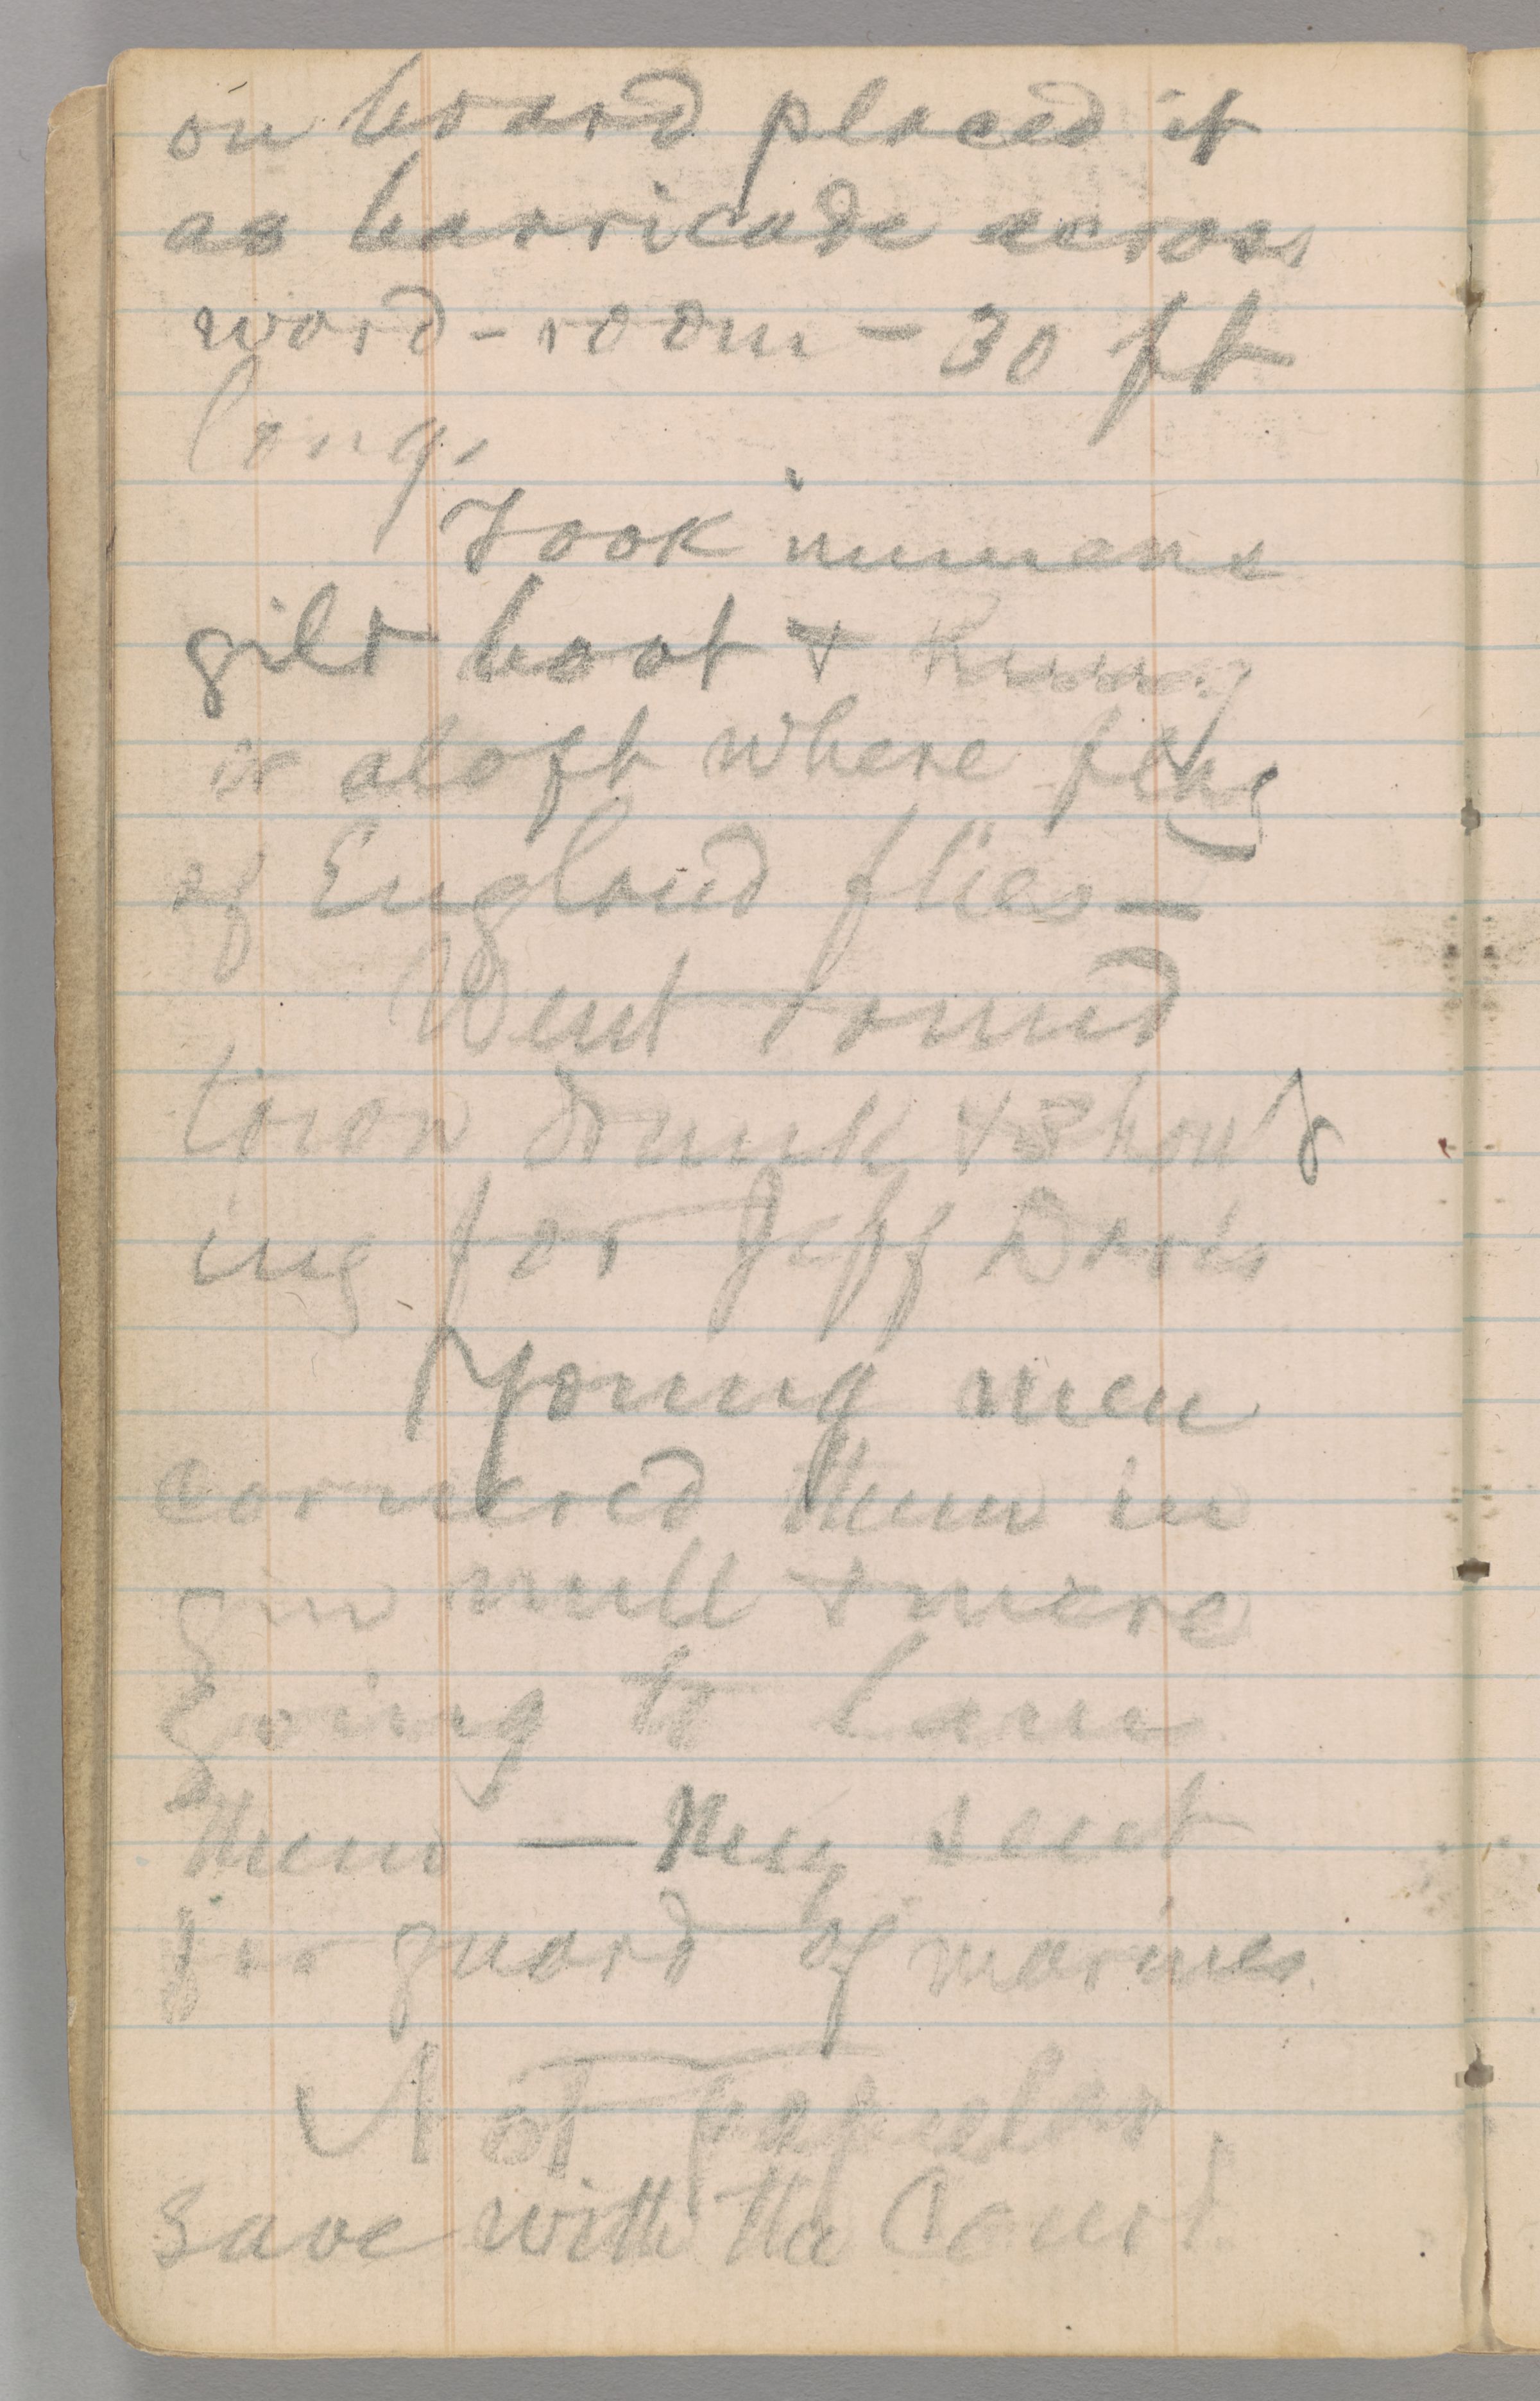 on board placed it
as barricade across
ward-room - 30 ft
long.
Took immens
gilt boot & hung
it aloft where flag
of England flies —
Went round
town drunk & shout
ing for Jeff Davis
young men
cornered them in
gin mill & were
going to lam
them — they sent
for guard of marines
Not popular
save with the Court